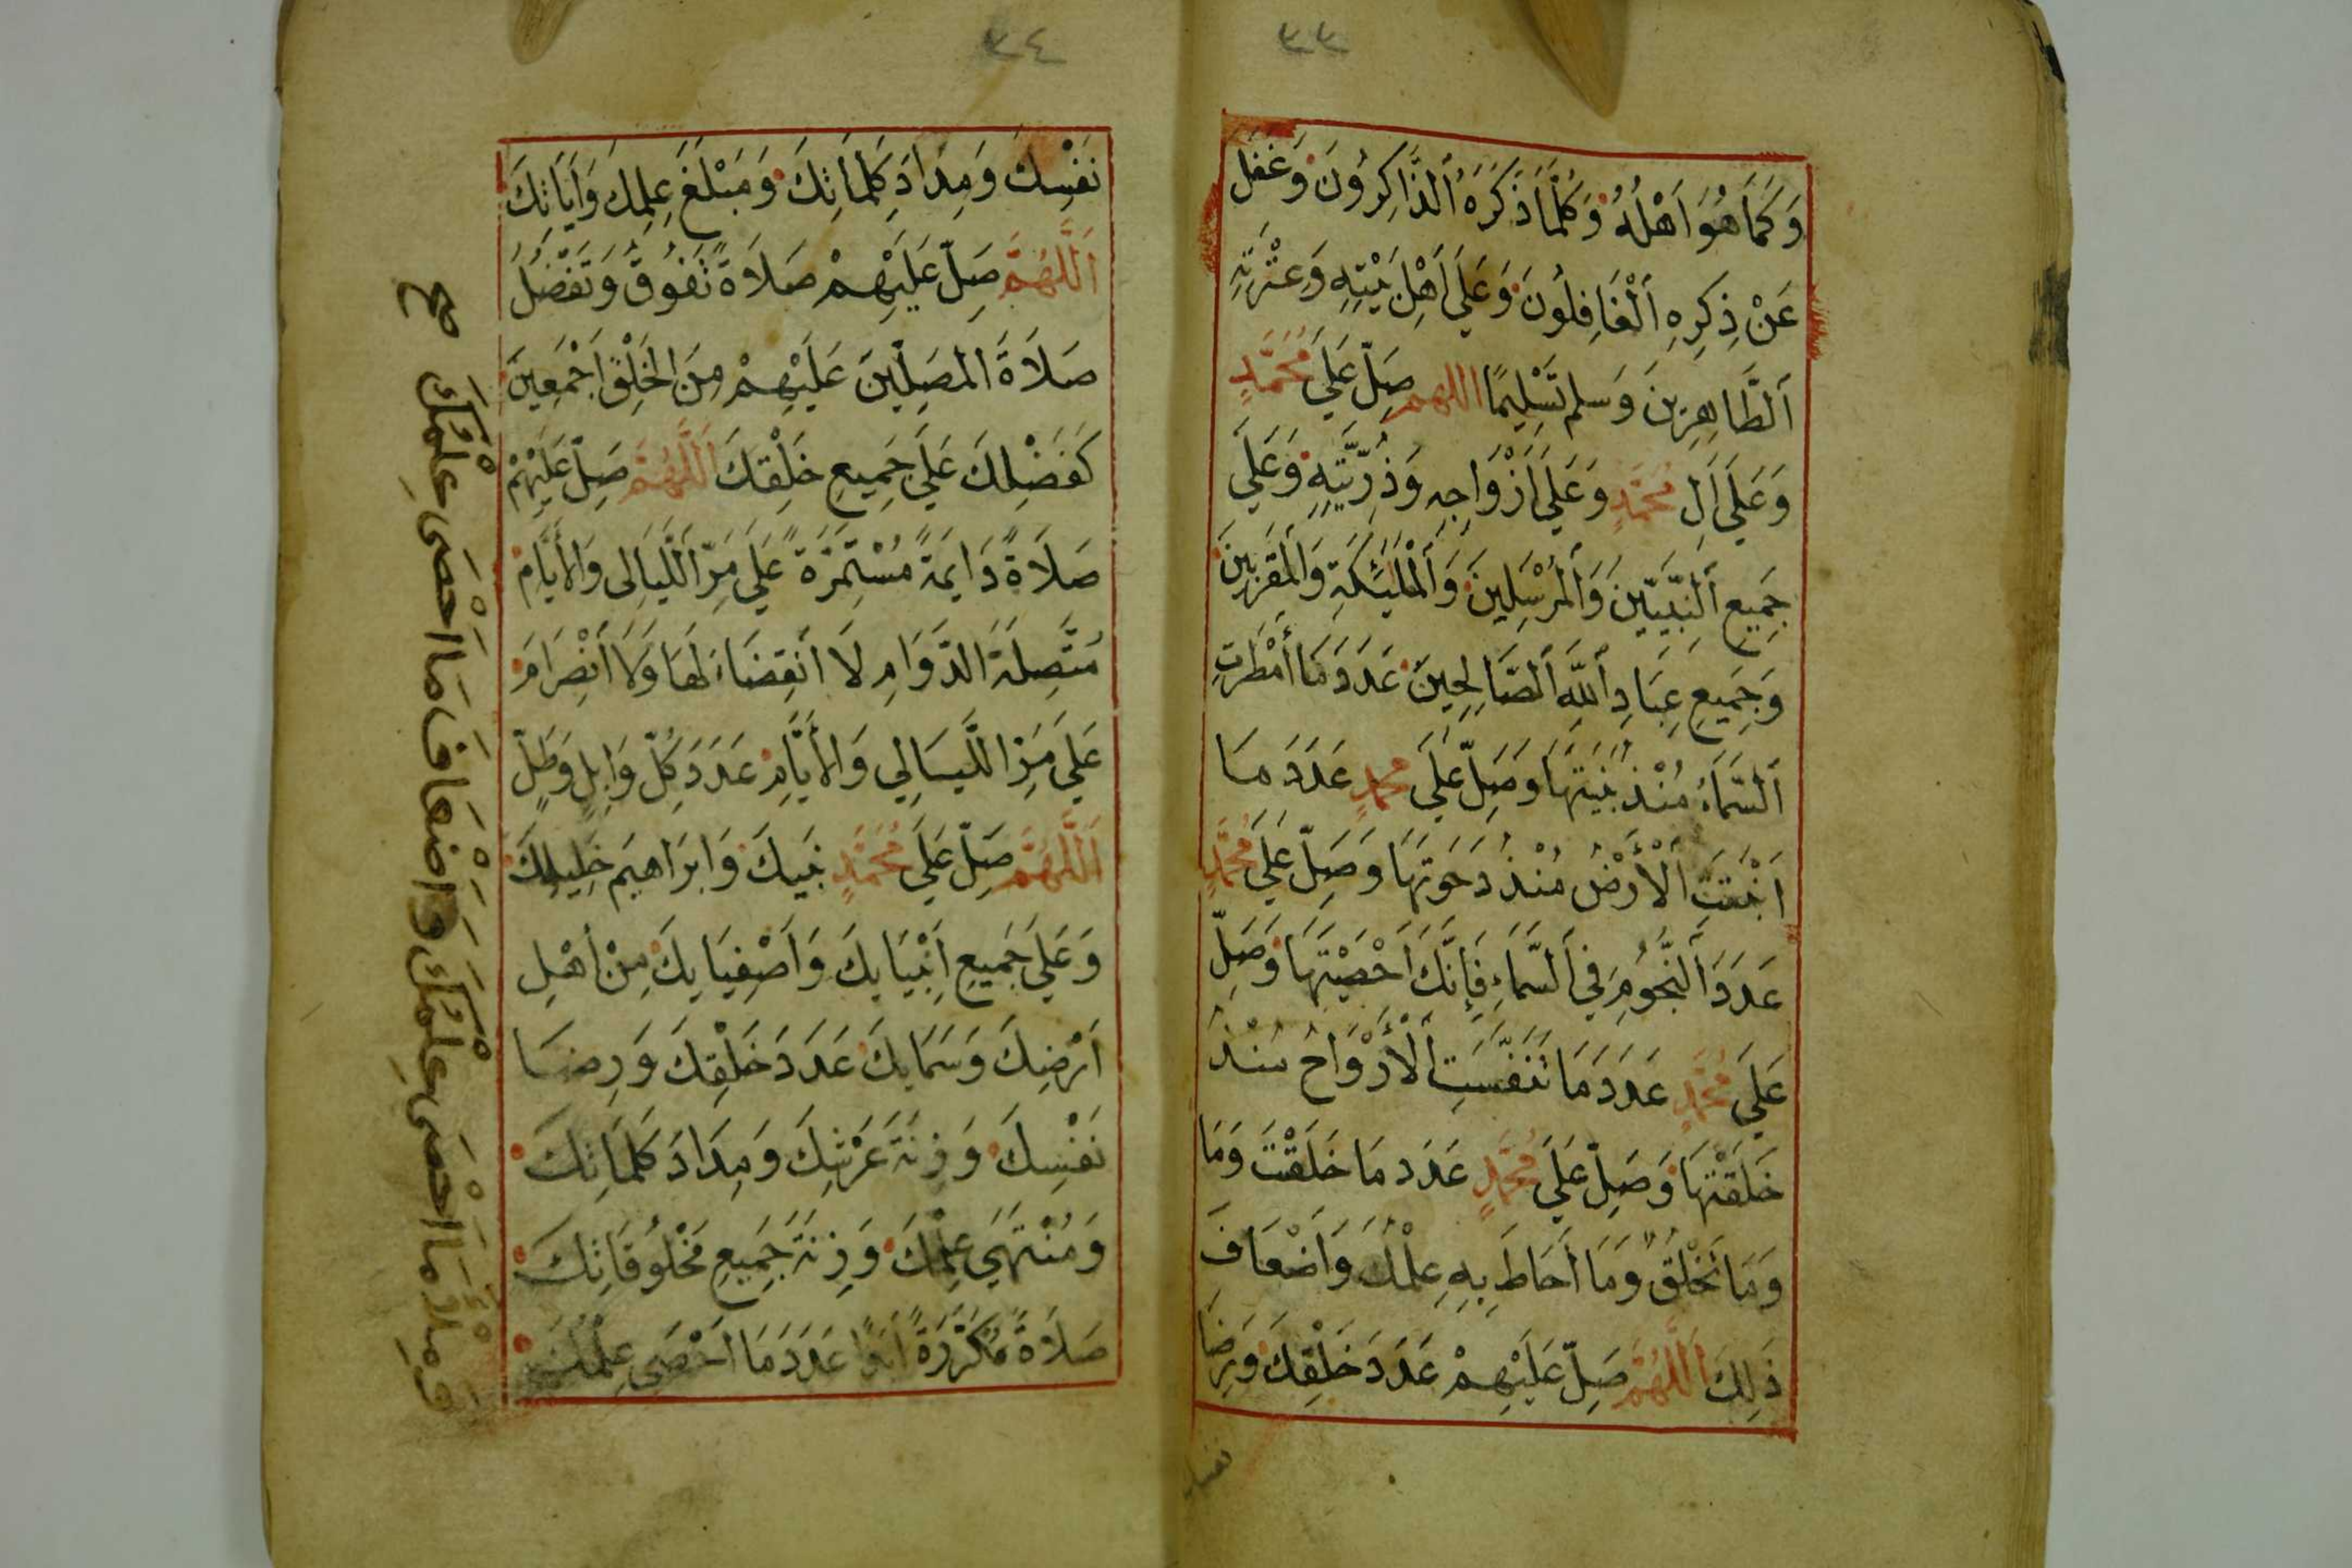 ٣٣
وَكَمَا هُوَ اَهْلُهُ وَكُلَّمَا ذَكَرَهُ اَلذَّاكِرُونَ وَغَفَلَ
عَنْ ذِكْرِهِ اَلْغَافِلُونَ وَعَلَى اَهْلِ بَيْتِهِ وَعِتْرَتِهِ
اَلطَّاهِرِينَ وَسلم تَسْلِيمًا اللهم صَلِّ عَلَى مُحَمَّدٍ
وَعَلَى اَلِ مُحَمَّدٍ وَعَلَى اَزْوَاجِهِ وَذُرِّيَّتِهِ وَعَلَى
جَمِيعِ اَلنَّبِيِّينَ وَاَلْمُرْسَلِينَ وَاَلْمَلَئِكَةِ وَاَلْمُقَرَّبِينَ
وَجَمِيعِ عِبَادِ اَللَّهِ اَلصَّالِحِينَ عَدَدَ مَا أَمْطَرَتِ
اَلسَّمَاءُ مُنْذُ بَنَيْتَهَا وَصَلِّ عَلَى مُحَمَّدٍ عَدَدَ مَا
اَنْبَتَتِ اَلْأَرْضُ مُنْذُ دَحَوْتَهَا وَصَلِّ عَلَى مُحَمَّدٍ
عَدَدَ اَلنُّجُومِ فِي اَلسَّمَاءِ فَإِنَّكَ اَحْصَيْتَهَا وَصَلِّ
عَلَى مُحَمَّدٍ عَدَدَ مَا تَنَفَّسَتِ اَلْأَرْوَاحُ مُنْذُ
خَلَقْتَهَا وَصَلِّ عَلَى مُحَمَّدٍ عَدَدَ مَا خَلَقْتَ وَمَا
وَمَا تَخْلُقُ وَمَا أَحَاطَ بِهِ عِلْمُكَ وَاَضْعَافَ
ذَلِكَ اَللَّهُمَّ صَلِّ عَلَيْهِمْ عَدَدَ خَلْقِكَ وَرِضَا
نفسك
٣٤
نَفْسِكَ وَمِدَادَ كَلِمَاتِكَ وَمَبْلَغَ عِلْمِكَ وَاَيَاتِكَ
اَللَّهُمَّ صَلِّ عَلَيْهِمْ صَلَاةً تَفُوقُ وَتَفْضُلُ
صَلَاةَ المُصَلِّينَ عَلَيْهِمْ مِنَ الخَلْقِ اَجْمَعِينَ
كَفَضْلِكَ عَلَى جَمِيعِ خَلْقِكَ اَللَّهُمَّ صَلِّ عَلَيْهِمْ
صَلَاةً دَايِمَةً مُسْتَمِرَّةً عَلَى مَرِّ اَللَّيَالِى وَالأَيَّامِ
مُتَّصِلَةَ الدَّوَامِ لَا اَنْقِضَاءَ لَهَا وَلَا اَنْصِرَامَ
عَلَى مَرِّ اللَّيَالِي وَالأَيَّامِ عَدَدَ كُلِّ وَابِلٍ وَطَلٍّ
اَللَّهُمَّ صَلِّ عَلَى مُحَمَّدٍ نَبِيكَ وَابرَاهِيم خَلِيلِكَ
وَعَلَى جَمِيعِ اَنْبِيَايِكَ وَاَصْفِيَايِكَ مِنْ اَهْلِ
اَرْضِكَ وَسَمَايِكَ عَدَدَ خَلْقِكَ وَرِضَا
نَفْسِكَ وَزِنَةَ عَرْشِكَ وَمِدَادَ كَلِمَاتِكَ
وَمُنْتَهَى عِلْمِكَ وَزِنَةَ جَمِيعِ مَخْلُوقَاتِكَ
صَلَاةً مُكَرَّرَةً اَبَدًا عَدَدَ مَا اَحْصَى عِلْمُكَ
وَمِلْأَ مَا اَحْصَى عِلْمُكَ وَاَضْعَافَ مَا اَحْصَى عِلْمُكَ صح